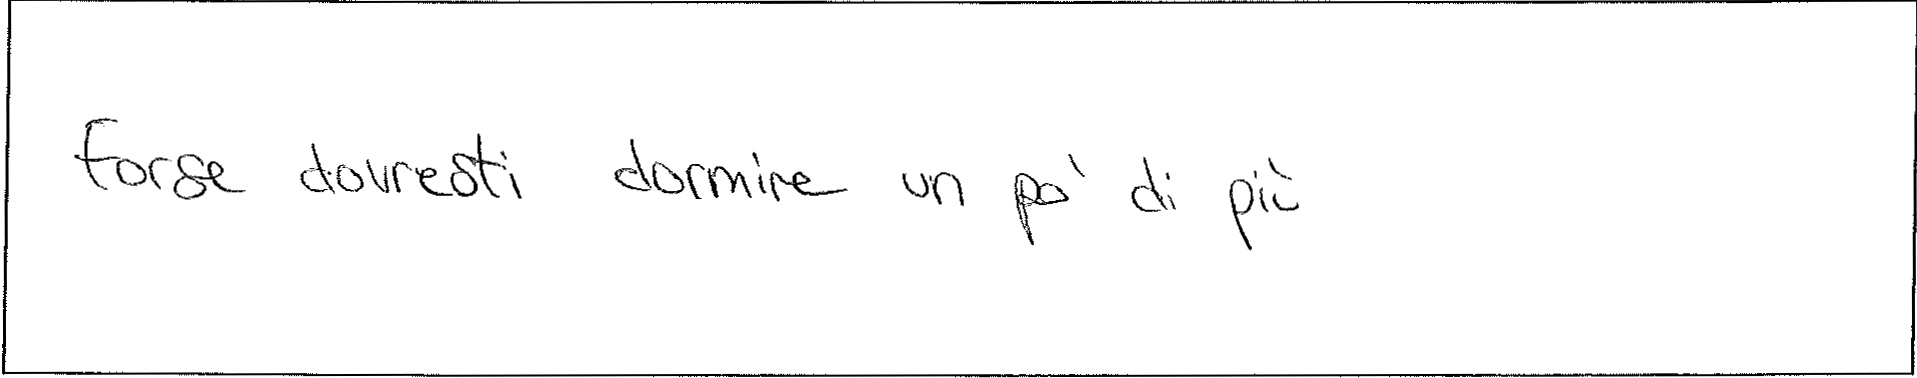 forse dovresti dormire un po' di più